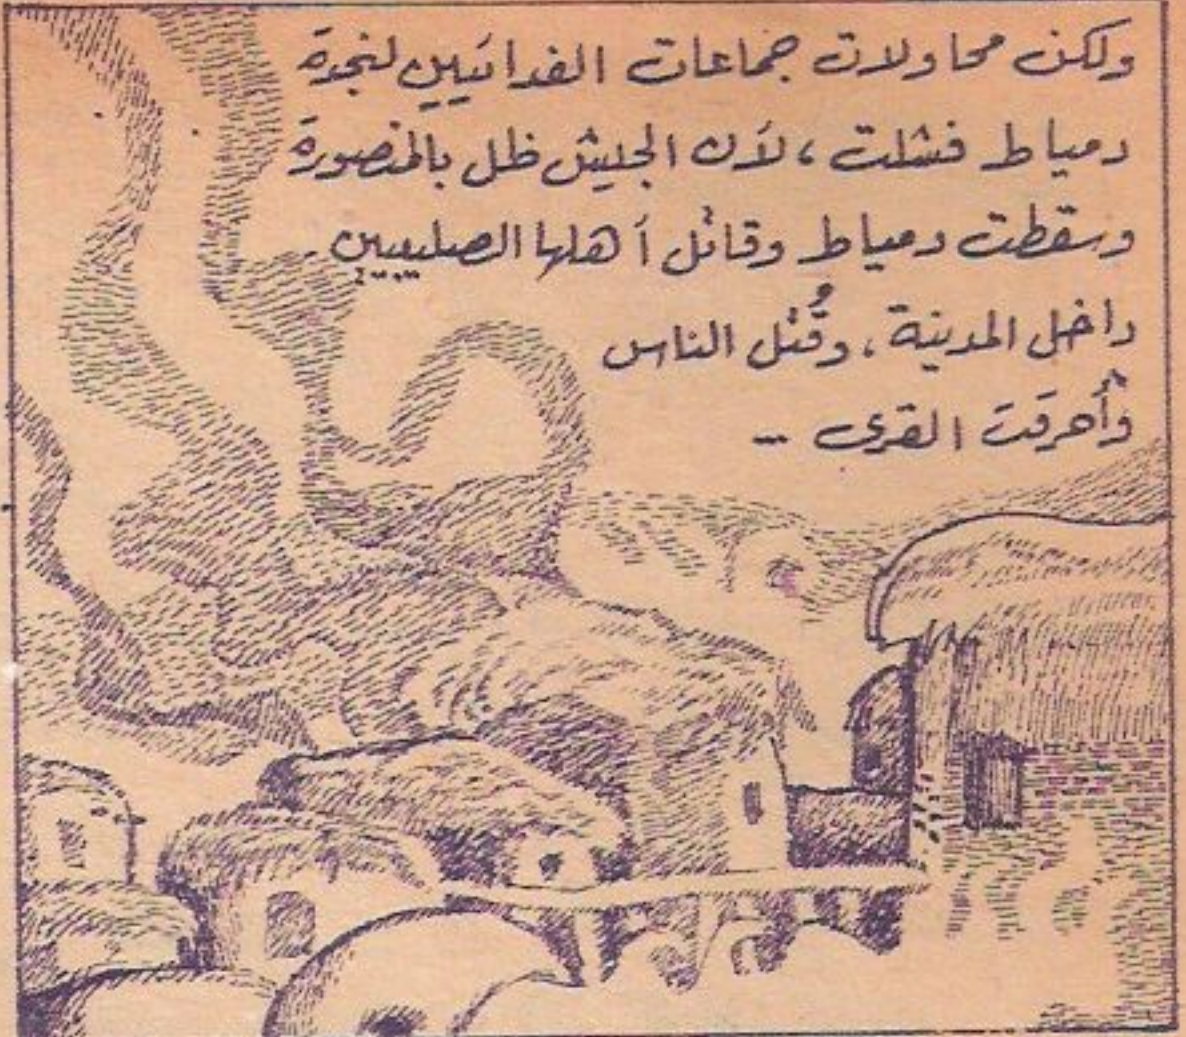 ولكن محاولات جماعات الفدائيين لنجدة
دمياط فشلت، لأن الجيش ظل بالمنصورة
وسقطت دمياط وقاتل أهلها الصليبيين
داخل المدينة، وقُتل الناس
وأُحرقت القرى --